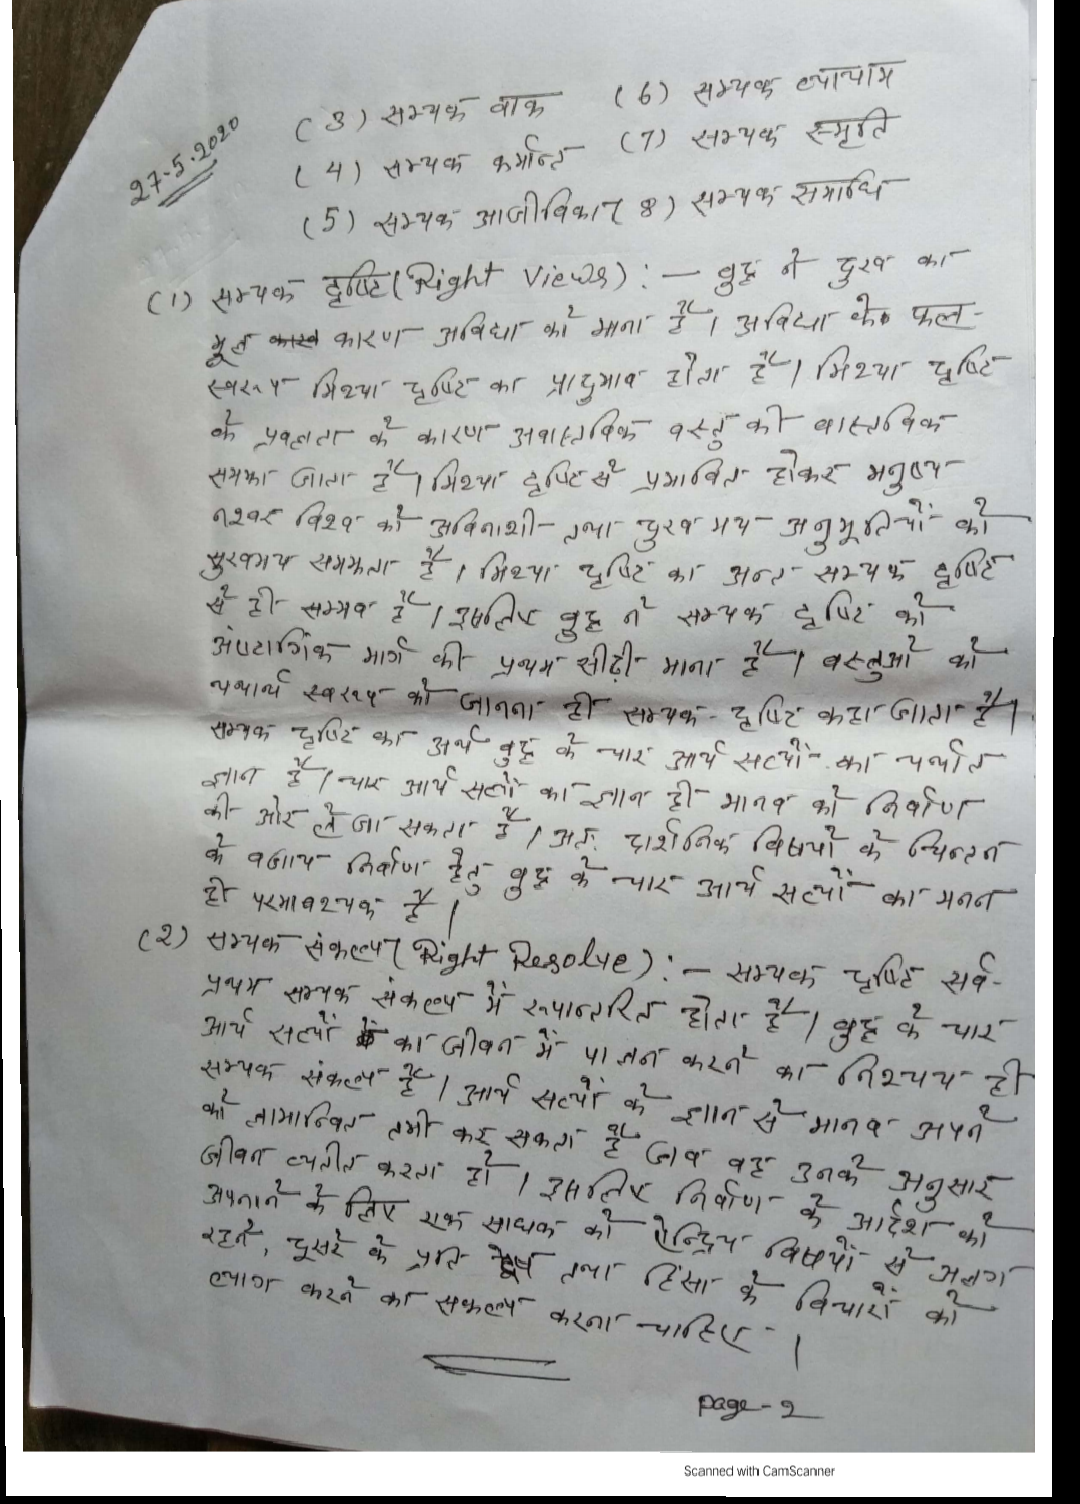 27-5-2020
(3) सम्यक वाक (6) सम्यक व्यायाम
(4) सम्यक कर्मान्त (7) सम्यक स्मृति
(5) सम्यक आजीविका (8) सम्यक समाधि
(1) सम्यक दृष्टि (Right Views) :- बुद्ध ने दुःख का
मूल कारण अविद्या को माना है। अविद्या के फल-
स्वरूप मिथ्या दृष्टि का प्रादुर्भाव होता है। मिथ्या दृष्टि
के प्रबलता के कारण अवास्तविक वस्तु को वास्तविक
समझा जाता है। मिथ्या दृष्टि से प्रभावित होकर मनुष्य
नश्वर विश्व को अविनाशी तथा दुखमय अनुभूतियों को
सुखमय समझता है। मिथ्या दृष्टि का अन्त सम्यक दृष्टि
से ही सम्भव है। इसलिए बुद्ध ने सम्यक दृष्टि को
अष्टांगिक मार्ग की प्रथम सीढ़ी माना है। वस्तुओं को
यथार्थ स्वरूप को जानना ही सम्यक दृष्टि कहा जाता है।
सम्यक दृष्टि का अर्थ बुद्ध के चार आर्य सत्यों का यर्थात
ज्ञान है। चार आर्य सत्यों का ज्ञान ही मानव को निर्वाण
की ओर ले जा सकता है। अतः दार्शनिक विषयों के चिन्तन
के बजाय निर्वाण हेतु बुद्ध के चार आर्य सत्यों का मनन
ही परमावश्यक है।
(2) सम्यक संकल्प (Right Resolve) :- सम्यक दृष्टि सर्व-
प्रथम सम्यक संकल्प में रूपान्तरित होता है। बुद्ध के चार
आर्य सत्यों का जीवन में पालन करने का निश्चय ही
सम्यक संकल्प है। आर्य सत्यों के ज्ञान से मानव अपने
को लाभान्वित तभी कर सकता है जब वह उनके अनुसार
जीवन व्यतीत करता हो। इसलिए निर्वाण के आदेश को
अपनाने के लिए एक साधक को ऐन्द्रिय विषयों से अलग
रहने, दूसरे के प्रति द्वेष तथा हिंसा के विचारों को
त्याग करने का संकल्प करना चाहिए।
page-2
Scanned with CamScanner